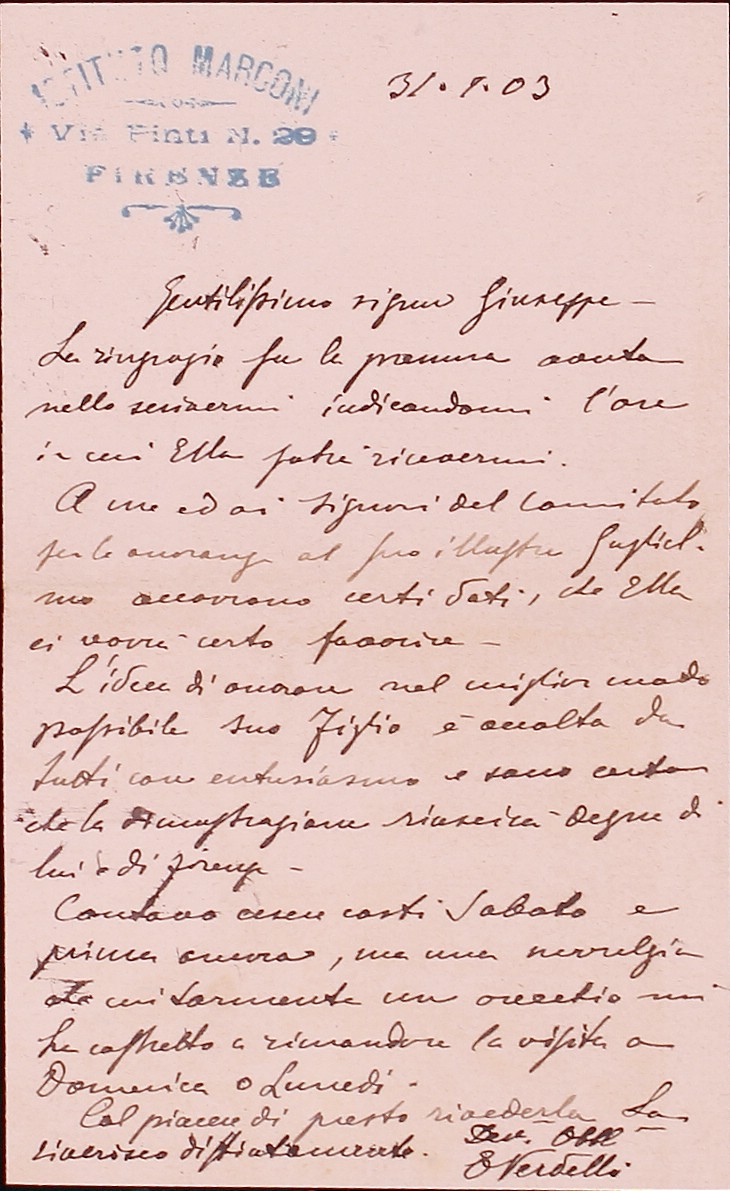 ISTITUTO MARCONI
Via Pinti N. 29
FIRENZE
31.1.03
Gentilissimo signor Giuseppe —
La ringrazio per la premura avuta
nello scrivermi indicandomi l'ora
in cui Ella potrà ricevermi.
A me ed ai Signori del Comitato
per le onoranze al suo illustre Gugliel-
mo occorrono certi dati, che Ella
ci vorrà certo favorire —
L'idea di onorare nel miglior modo
possibile suo Figlio è accolta da
tutti con entusiasmo e sono certo
che la dimostrazione riuscirà degna di
lui e di Firenze —
Contavo essere costì Sabato e
prima ancora, ma una nevralgia
che mi tormenta un orecchio mi
ha costretto a rimandare la visita a
Domenica o Lunedì.
Col piacere di presto rivederla La
riverisco distintamente.
Dev. Obbl
E Verdelli